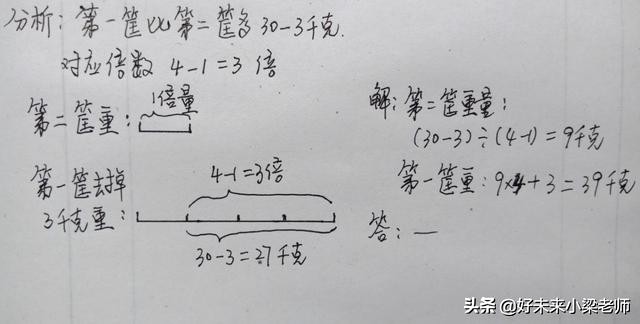 分析：第一筐比第二筐多30-3千克.
对应倍数 4-1=3倍
1倍量
第二筐重：
第一筐去掉
3千克重：
4-1=3倍
30-3=27千克
解：第二筐重量：
(30-3)÷(4-1)=9千克
第一筐重：9×4+3=39千克
答：—
头条 @好未来小梁老师